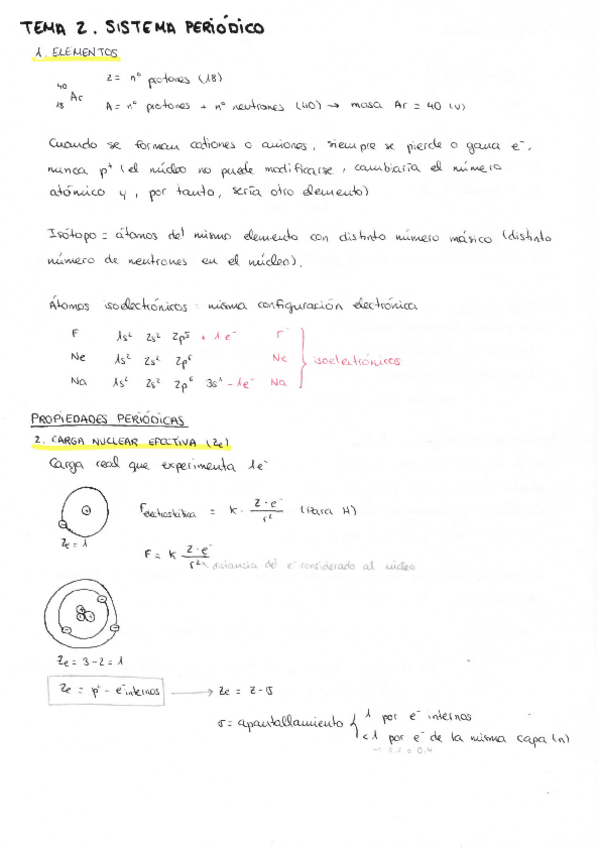 TEMA 2. SISTEMA PERIÓDICO
1. ELEMENTOS
40 18 Ar
Z = nº protones (18)
A = nº protones + nº neutrones (40) → masa Ar = 40 (u)
Cuando se forman cationes o aniones, siempre se pierde o gana e⁻,
nunca p⁺ (el núcleo no puede modificarse, cambiaría el número
atómico y, por tanto, sería otro elemento)
Isótopo = átomos del mismo elemento con distinto número másico (distinto
número de neutrones en el núcleo).
Átomos isoelectrónicos: misma configuración electrónica
F 1s² 2s² 2p⁵ + 1e⁻ F⁻
Ne 1s² 2s² 2p⁶ Ne isoelectrónicos
Na 1s² 2s² 2p⁶ 3s¹ - 1e⁻ Na
PROPIEDADES PERIÓDICAS
2. CARGA NUCLEAR EFECTIVA (Ze)
Carga real que experimenta 1e⁻
Felectrostática = k · Z·e⁻/r² (Para H)
Ze = 1
F = k Z·e⁻/r²
distancia del e⁻ considerado al núcleo
Ze = 3 - 2 = 1
Ze = p⁺ - e⁻ internos → Ze = Z - σ
σ = apantallamiento
1 por e⁻ internos
< 1 por e⁻ de la misma capa (n)